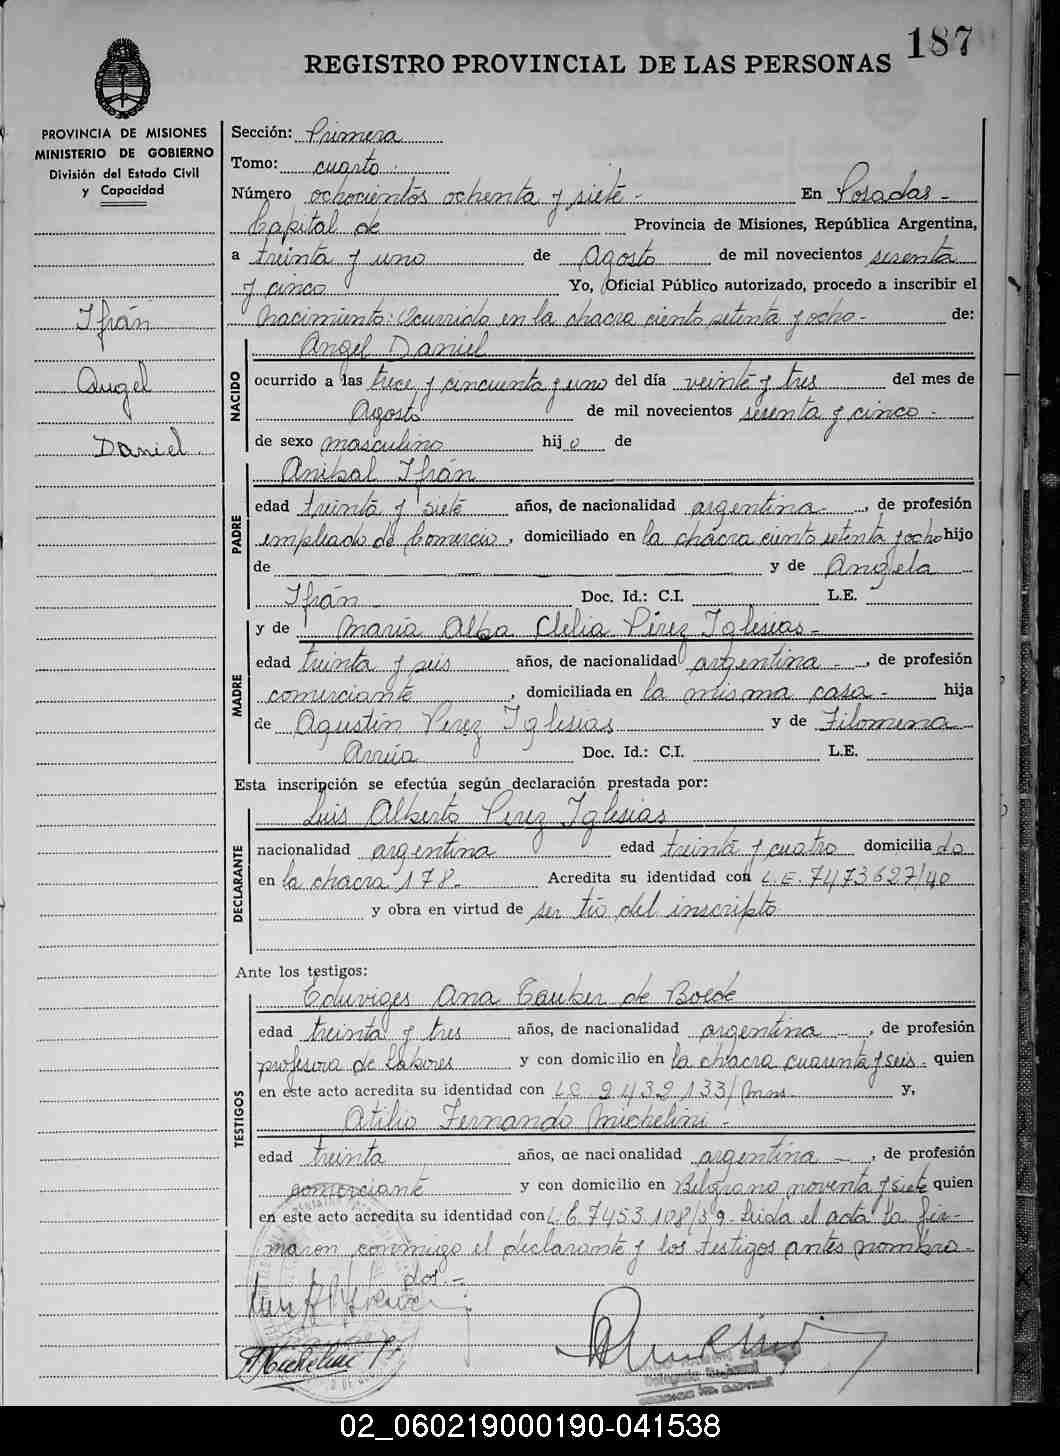 187
REGISTRO PROVINCIAL DE LAS PERSONAS
PROVINCIA DE MISIONES
MINISTERIO DE GOBIERNO
División del Estado Civil
y Capacidad
Ifrán
Angel
Daniel.
Sección: Primera
Tomo: cuarto
Número ochocientos ochenta y siete - En Posadas -
Capital de Provincia de Misiones, República Argentina,
a treinta y uno de Agosto de mil novecientos sesenta
y cinco Yo, Oficial Público autorizado, procedo a inscribir el
Nacimiento: Ocurrido en la chacra ciento setenta y ocho - de:
NACIDO
Angel Daniel
ocurrido a las trece y cincuenta y uno del día veinte y tres del mes de
Agosto de mil novecientos sesenta y cinco -
de sexo masculino hijo de
PADRE
Anibal Ifrán
edad treinta y siete años, de nacionalidad argentina -, de profesión
empleado de Comercio, domiciliado en la chacra ciento setenta y ocho hijo
de y de Angela
Ifrán - Doc. Id.: C.I. L.E.
MADRE
y de María Alba Clelia Pérez Iglesias -
edad treinta y seis años, de nacionalidad argentina -, de profesión
comerciante, domiciliada en la misma casa - hija
de Agustín Perez Iglesias y de Filomena
Arrúa Doc. Id.: C.I. L.E.
Esta inscripción se efectúa según declaración prestada por:
DECLARANTE
Luis Alberto Perez Iglesias
nacionalidad argentina edad treinta y cuatro domiciliado
en la chacra 178 - Acredita su identidad con L.E. 7473627/40
y obra en virtud de ser tío del inscripto
Ante los testigos:
TESTIGOS
Eduviges Ana Cauber de Boede
edad treinta y tres años, de nacionalidad argentina -, de profesión
profesora de Labores y con domicilio en la chacra cuarenta y seis - quien
en este acto acredita su identidad con L.C. 2432133/Mns. y,
Atilio Fernando Michelini -
edad treinta años, de nacionalidad argentina -, de profesión
comerciante y con domicilio en Belgrano noventa y siete quien
en este acto acredita su identidad con L.E. 7453108/39 - Leida el acta la fir-
maron conmigo el declarante y los testigos antes nombra-
dos. -
A Michelini
02_060219000190-041538